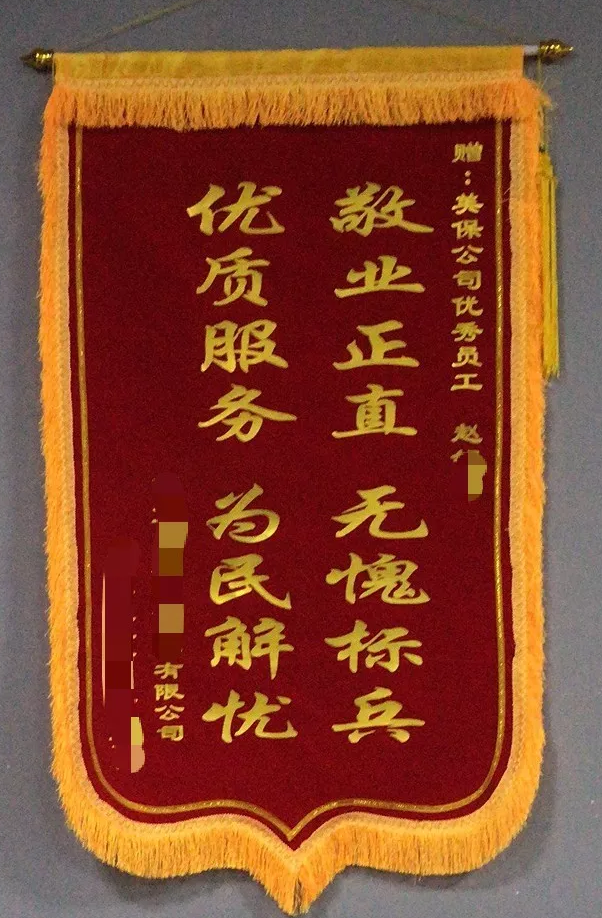 赠：美保公司优秀员工 赵
敬业正直 无愧标兵
优质服务 为民解忧
有限公司